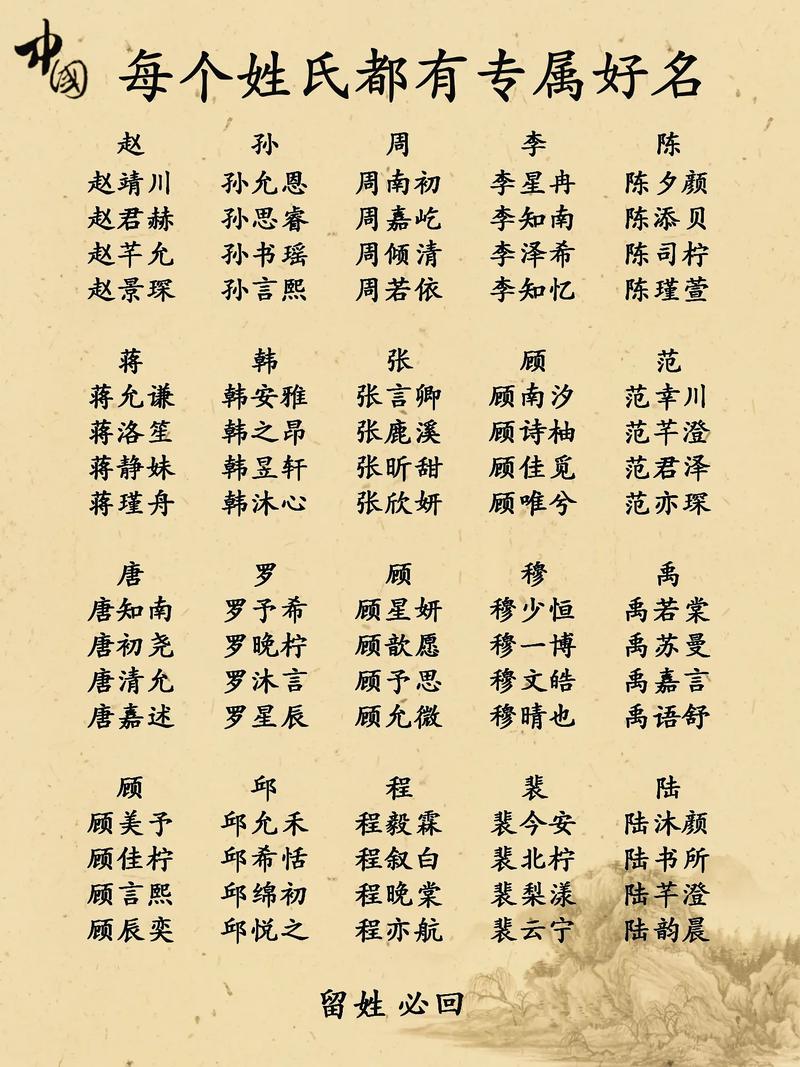 中國
每个姓氏都有专属好名
赵 孙 周 李 陈
赵靖川 孙允恩 周南初 李星冉 陈夕颜
赵君赫 孙思睿 周嘉屹 李知南 陈添贝
赵芊允 孙书瑶 周倾清 李泽希 陈司柠
赵景琛 孙言熙 周若依 李知忆 陈瑾萱
蒋 韩 张 顾 范
蒋允谦 韩安雅 张言卿 顾南汐 范幸川
蒋洛笙 韩之昂 张鹿溪 顾诗柚 范芊澄
蒋静姝 韩昱轩 张昕甜 顾佳觅 范君泽
蒋瑾舟 韩沐心 张欣妍 顾唯兮 范亦琛
唐 罗 顾 穆 禹
唐知南 罗予希 顾星妍 穆少恒 禹若棠
唐初尧 罗晚柠 顾歆愿 穆一博 禹苏曼
唐清允 罗沐言 顾予思 穆文皓 禹嘉言
唐嘉述 罗星辰 顾允微 穆晴也 禹语舒
顾 邱 程 裴 陆
顾美予 邱允禾 程毅霖 裴今安 陆沐颜
顾佳柠 邱希恬 程叙白 裴北柠 陆书所
顾言熙 邱绵初 程晚棠 裴梨漾 陆芊澄
顾辰奕 邱悦之 程亦航 裴云宁 陆韵晨
留姓 必回